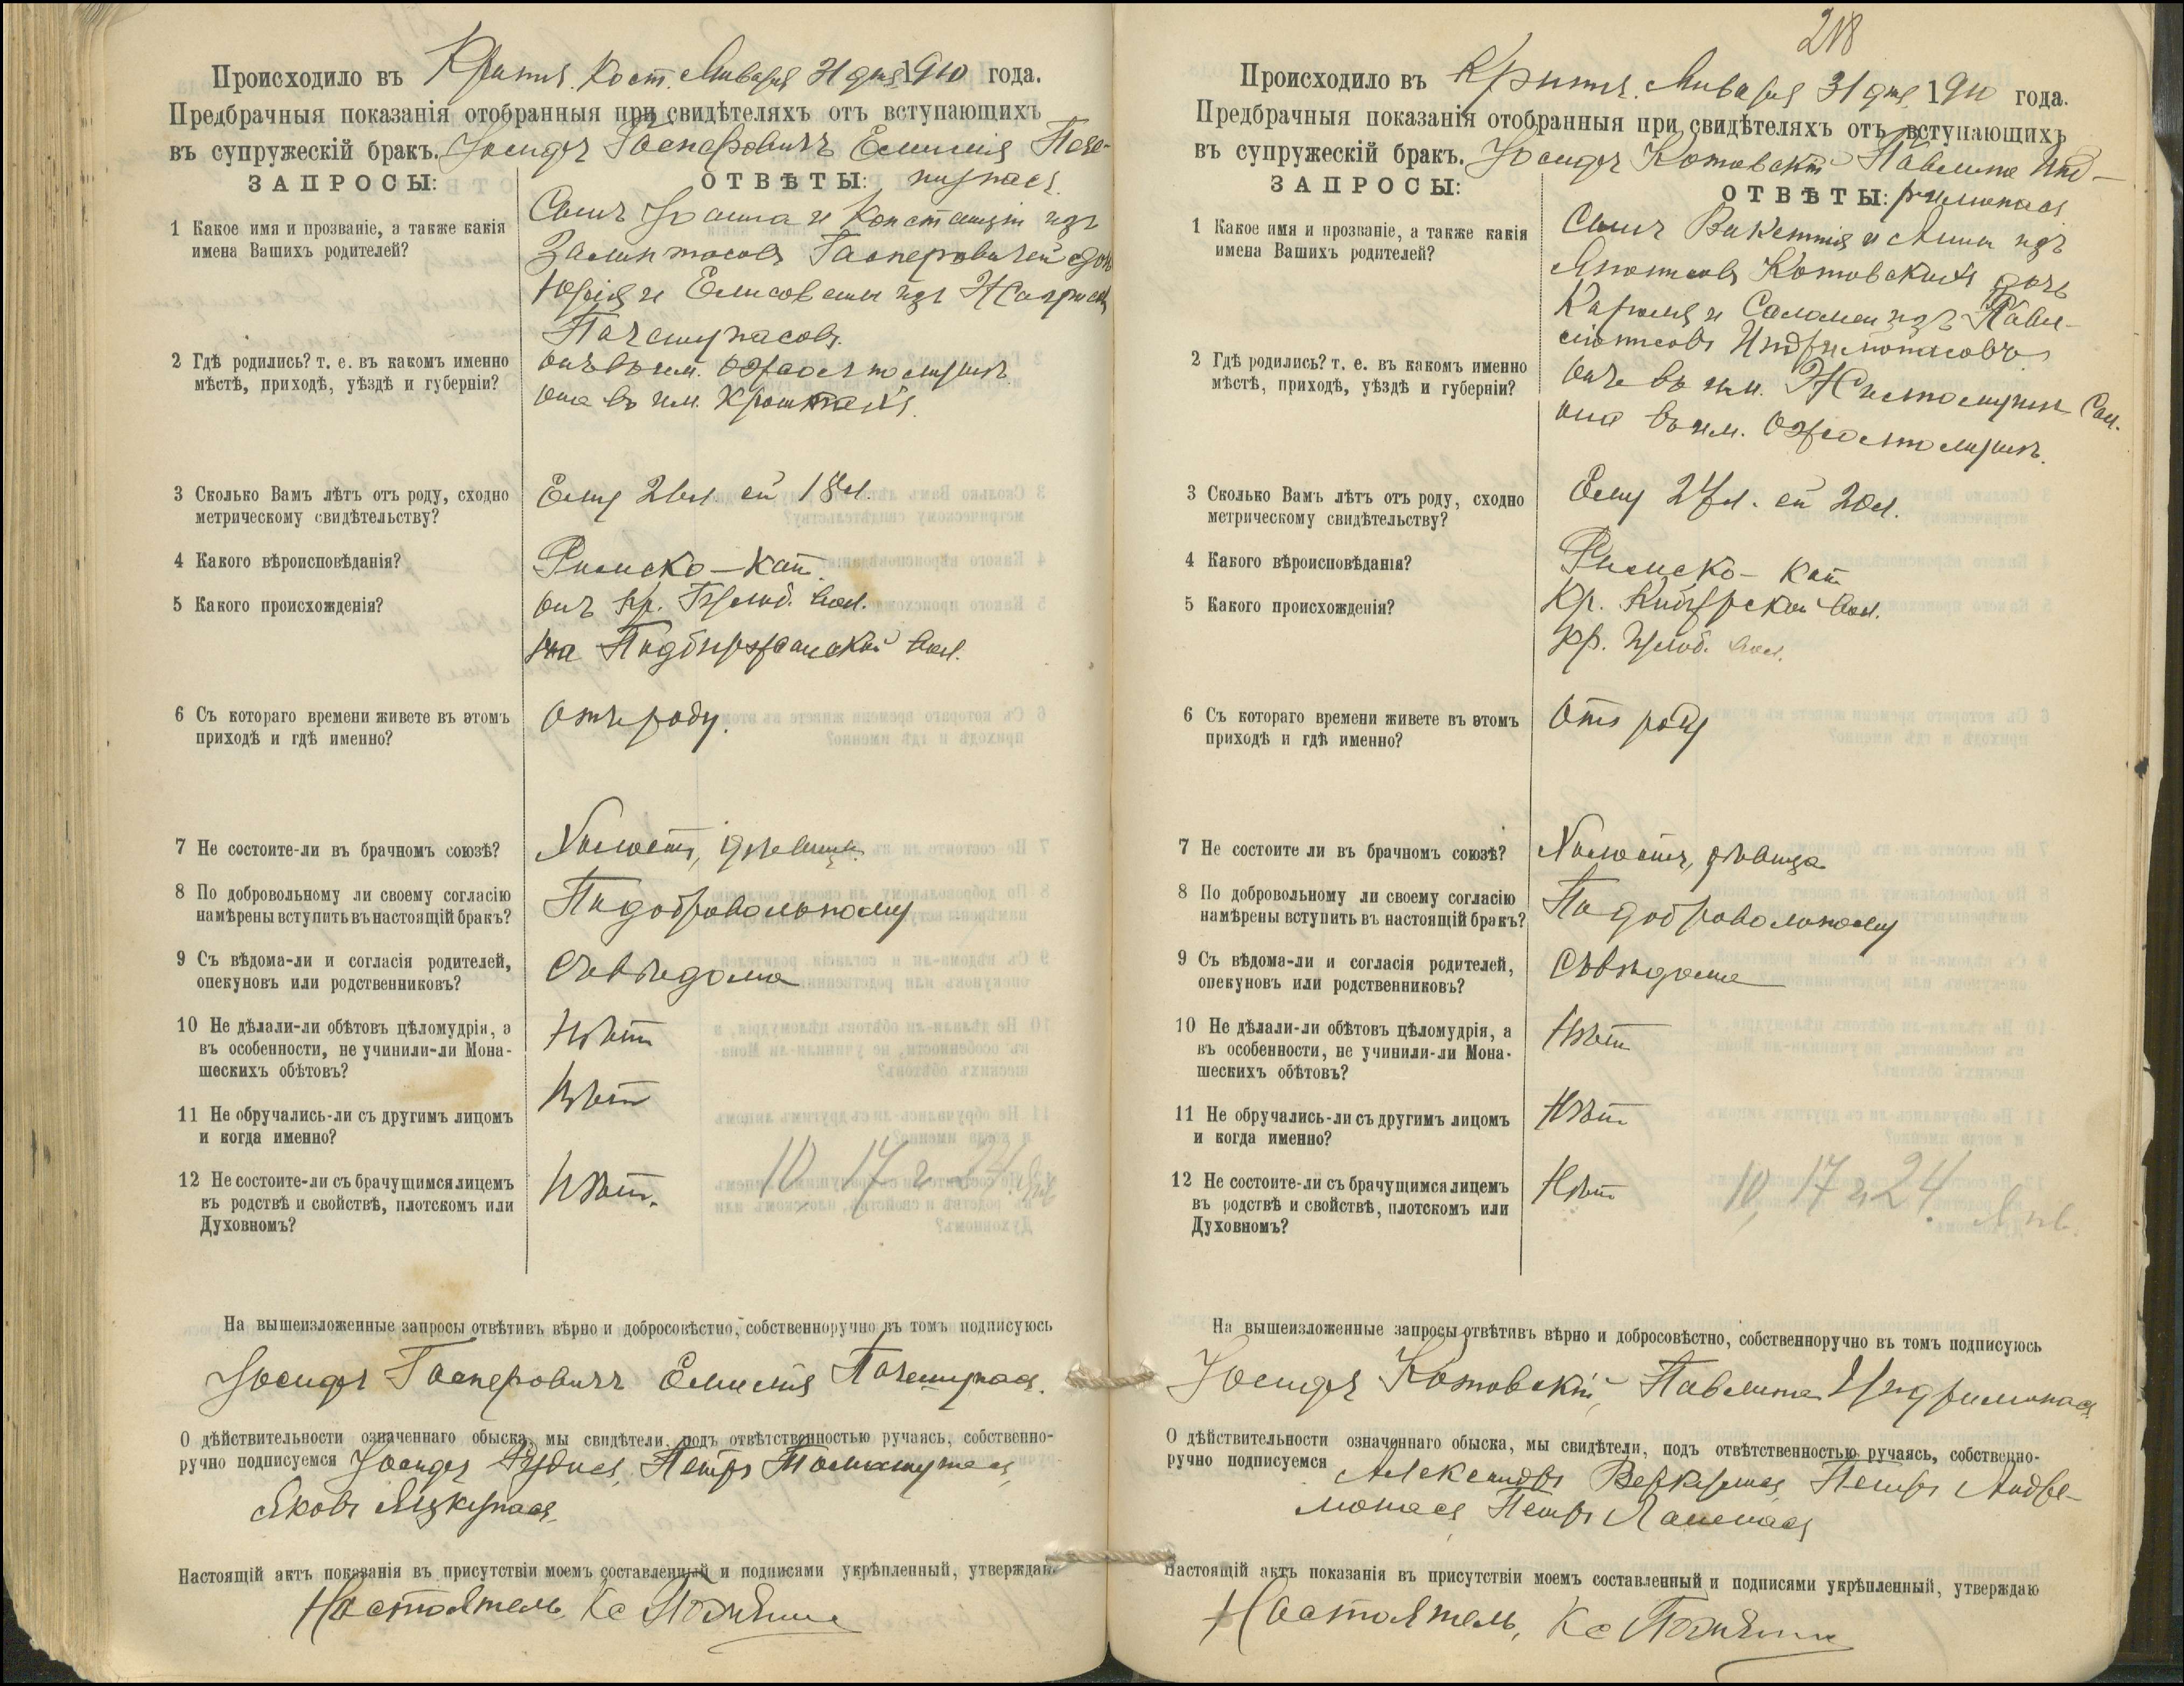 Происходило въ Кост. Января 31 дня 1910 года.
Предбрачныя показанія отобранныя при свидѣтеляхъ отъ вступающихъ
въ супружескій бракъ. Іосифъ Гасперовичъ Емилія
ЗАПРОСЫ: ОТВѢТЫ:
1 Какое имя и прозваніе, а также какія
имена Вашихъ родителей?
Сынъ Іоанна и Констанціи изъ
Гасперовичей
Юрія и Елисаветы изъ
2 Гдѣ родились? т. е. въ какомъ именно
мѣстѣ, приходѣ, уѣздѣ и губерніи?
онъ въ им.
она въ им.
3 Сколько Вамъ лѣтъ отъ роду, сходно
метрическому свидѣтельству?
Ему ей 18 л.
4 Какого вѣроисповѣданія?
Римско-кат.
5 Какого происхожденія?
онъ кр. вол.
она вол.
6 Съ котораго времени живете въ этомъ
приходѣ и гдѣ именно?
Отъ роду.
7 Не состоите-ли въ брачномъ союзѣ?
Холостъ, дѣвица.
8 По добровольному ли своему согласію
намѣрены вступить въ настоящій бракъ?
По добровольному
9 Съ вѣдома-ли и согласія родителей,
опекуновъ или родственниковъ?
Съ вѣдома
10 Не дѣлали-ли обѣтовъ цѣломудрія, а
въ особенности, не учинили-ли Мона-
шескихъ обѣтовъ?
Нѣтъ
11 Не обручались-ли съ другимъ лицомъ
и когда именно?
Нѣтъ
12 Не состоите-ли съ брачущимся лицемъ
въ родствѣ и свойствѣ, плотскомъ или
Духовномъ?
Нѣтъ.
10, 17 и 24 Янв.
На вышеизложенные запросы отвѣтивъ вѣрно и добросовѣстно, собственноручно въ томъ подписуюсь
Іосифъ Гасперовичъ Емилія
О дѣйствительности означеннаго обыска, мы свидѣтели, подъ отвѣтственностью ручаясь, собственно-
ручно подписуемся Іосифъ Петръ
Яковъ
Настоящій актъ показанія въ присутствіи моемъ составленный и подписями укрѣпленный, утверждаю
Настоятель, Кс
218
Происходило въ Января 31 дня 1910 года.
Предбрачныя показанія отобранныя при свидѣтеляхъ отъ вступающихъ
въ супружескій бракъ. Іосифъ Котовскій Павлина
ЗАПРОСЫ: ОТВѢТЫ:
1 Какое имя и прозваніе, а также какія
имена Вашихъ родителей?
Сынъ Викентія и Анны изъ
Котовскихъ дочь
Кароля и Саломеи изъ
2 Гдѣ родились? т. е. въ какомъ именно
мѣстѣ, приходѣ, уѣздѣ и губерніи?
онъ въ им.
она въ им.
3 Сколько Вамъ лѣтъ отъ роду, сходно
метрическому свидѣтельству?
Ему 27 л. ей 20 л.
4 Какого вѣроисповѣданія?
Римско-кат
5 Какого происхожденія?
Кр. вол.
кр. вол.
6 Съ котораго времени живете въ этомъ
приходѣ и гдѣ именно?
Отъ роду
7 Не состоите ли въ брачномъ союзѣ?
Холостъ, дѣвица
8 По добровольному ли своему согласію
намѣрены вступить въ настоящій бракъ?
По добровольному
9 Съ вѣдома-ли и согласія родителей,
опекуновъ или родственниковъ?
Съ вѣдома
10 Не дѣлали-ли обѣтовъ цѣломудрія, а
въ особенности, не учинили-ли Мона-
шескихъ обѣтовъ?
Нѣтъ
11 Не обручались-ли съ другимъ лицомъ
и когда именно?
Нѣтъ
12 Не состоите-ли съ брачущимся лицемъ
въ родствѣ и свойствѣ, плотскомъ или
Духовномъ?
Нѣтъ
10, 17 и 24 Янв.
На вышеизложенные запросы отвѣтивъ вѣрно и добросовѣстно, собственноручно въ томъ подписуюсь
Іосифъ Котовскій, Павлина
О дѣйствительности означеннаго обыска, мы свидѣтели, подъ отвѣтственностью ручаясь, собственно-
ручно подписуемся Александръ Петръ
Петръ
Настоящій актъ показанія въ присутствіи моемъ составленный и подписями укрѣпленный, утверждаю
Настоятель, Кс